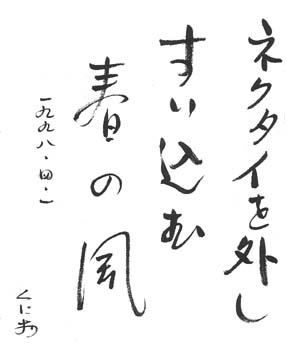 ネクタイを外し
すい込む
春の風
一九九八・四・一